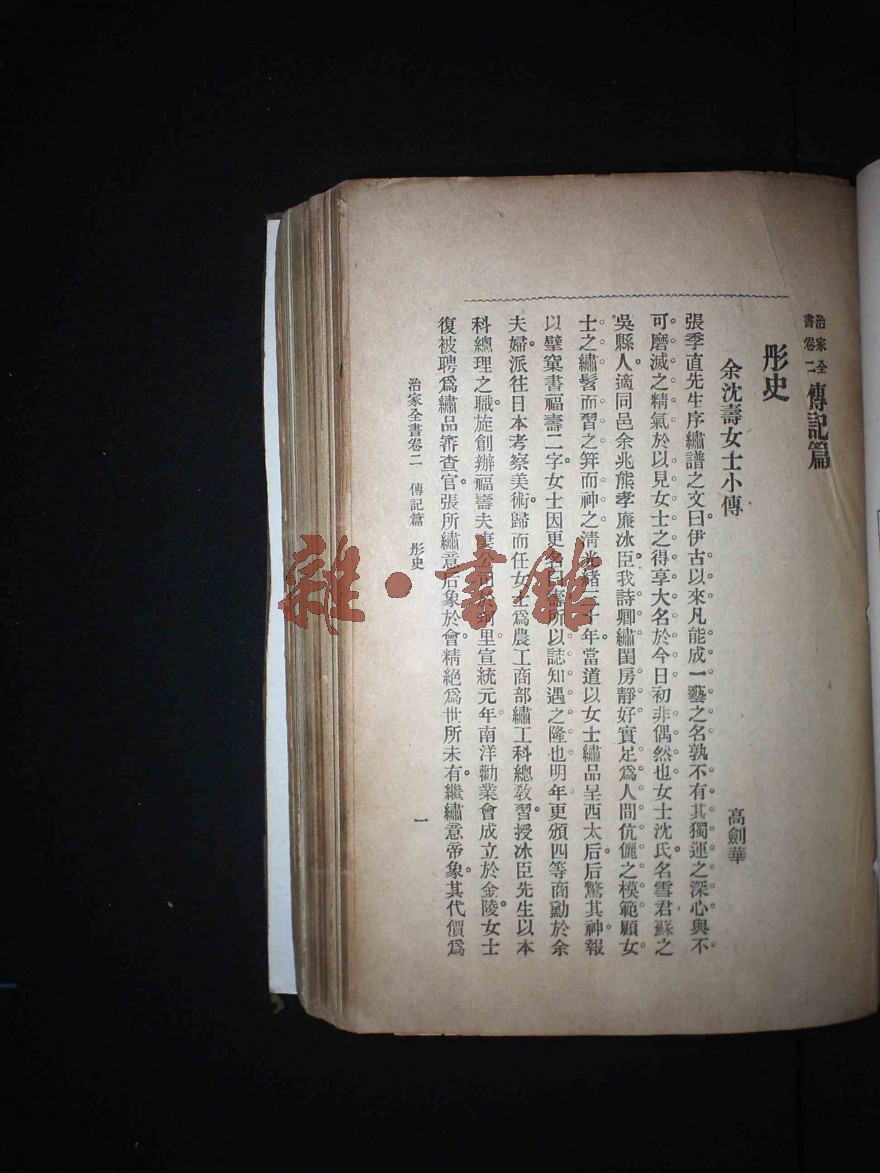 治家全書卷二 傳記篇
彤史
余沈壽女士小傳
高劍華
張季直先生序繡譜之文曰伊古以來凡能成一藝之名孰不有其獨運之深心與不
可磨滅之精氣於以見女士之得享大名於今日初非偶然也女士沈氏名雪君蘇之
吳縣人適同邑余兆熊孝廉冰臣我詩卿繡閨房靜好實足爲人間伉儷之模範顧女
士之繡髫而習之笄而神之淸光緒三十年當道以女士繡品呈西太后后驚其神報
以擘窠書福壽二字女士因更名曰壽所以誌知遇之隆也明年更頒四等商勳於余
夫婦派往日本考察美術歸而任女士爲農工商部繡工科總敎習授冰臣先生以本
科總理之職旋創辦福壽夫妻公司於 里宣統元年南洋勸業會成立於金陵女士
復被聘爲繡品審查官張所繡意后象於會精絕爲世所未有繼繡意帝象其代價爲
治家全書卷二 傳記篇 彤史
一
雜·書館